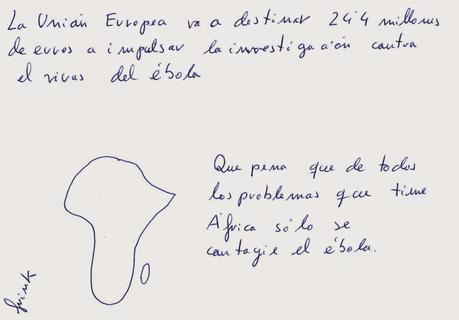 La Unión Europea va a destinar 24'4 millones
de euros a impulsar la investigación contra
el virus del ébola
Que pena que de todos
los problemas que tiene
África sólo se
contagie el ébola.
frink